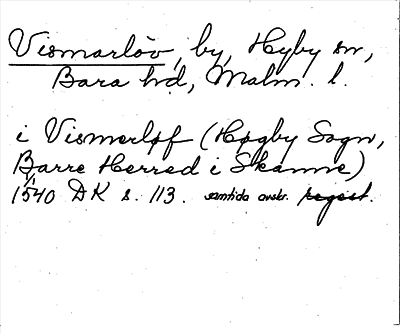 Vismarlöv, by, Hyby sn,
Bara hd, Malm. l.
i Vismerløf (Høgby Sogn,
Barre Herred i Skanne)
1540 DK s. 113. samtida avskr. regest.